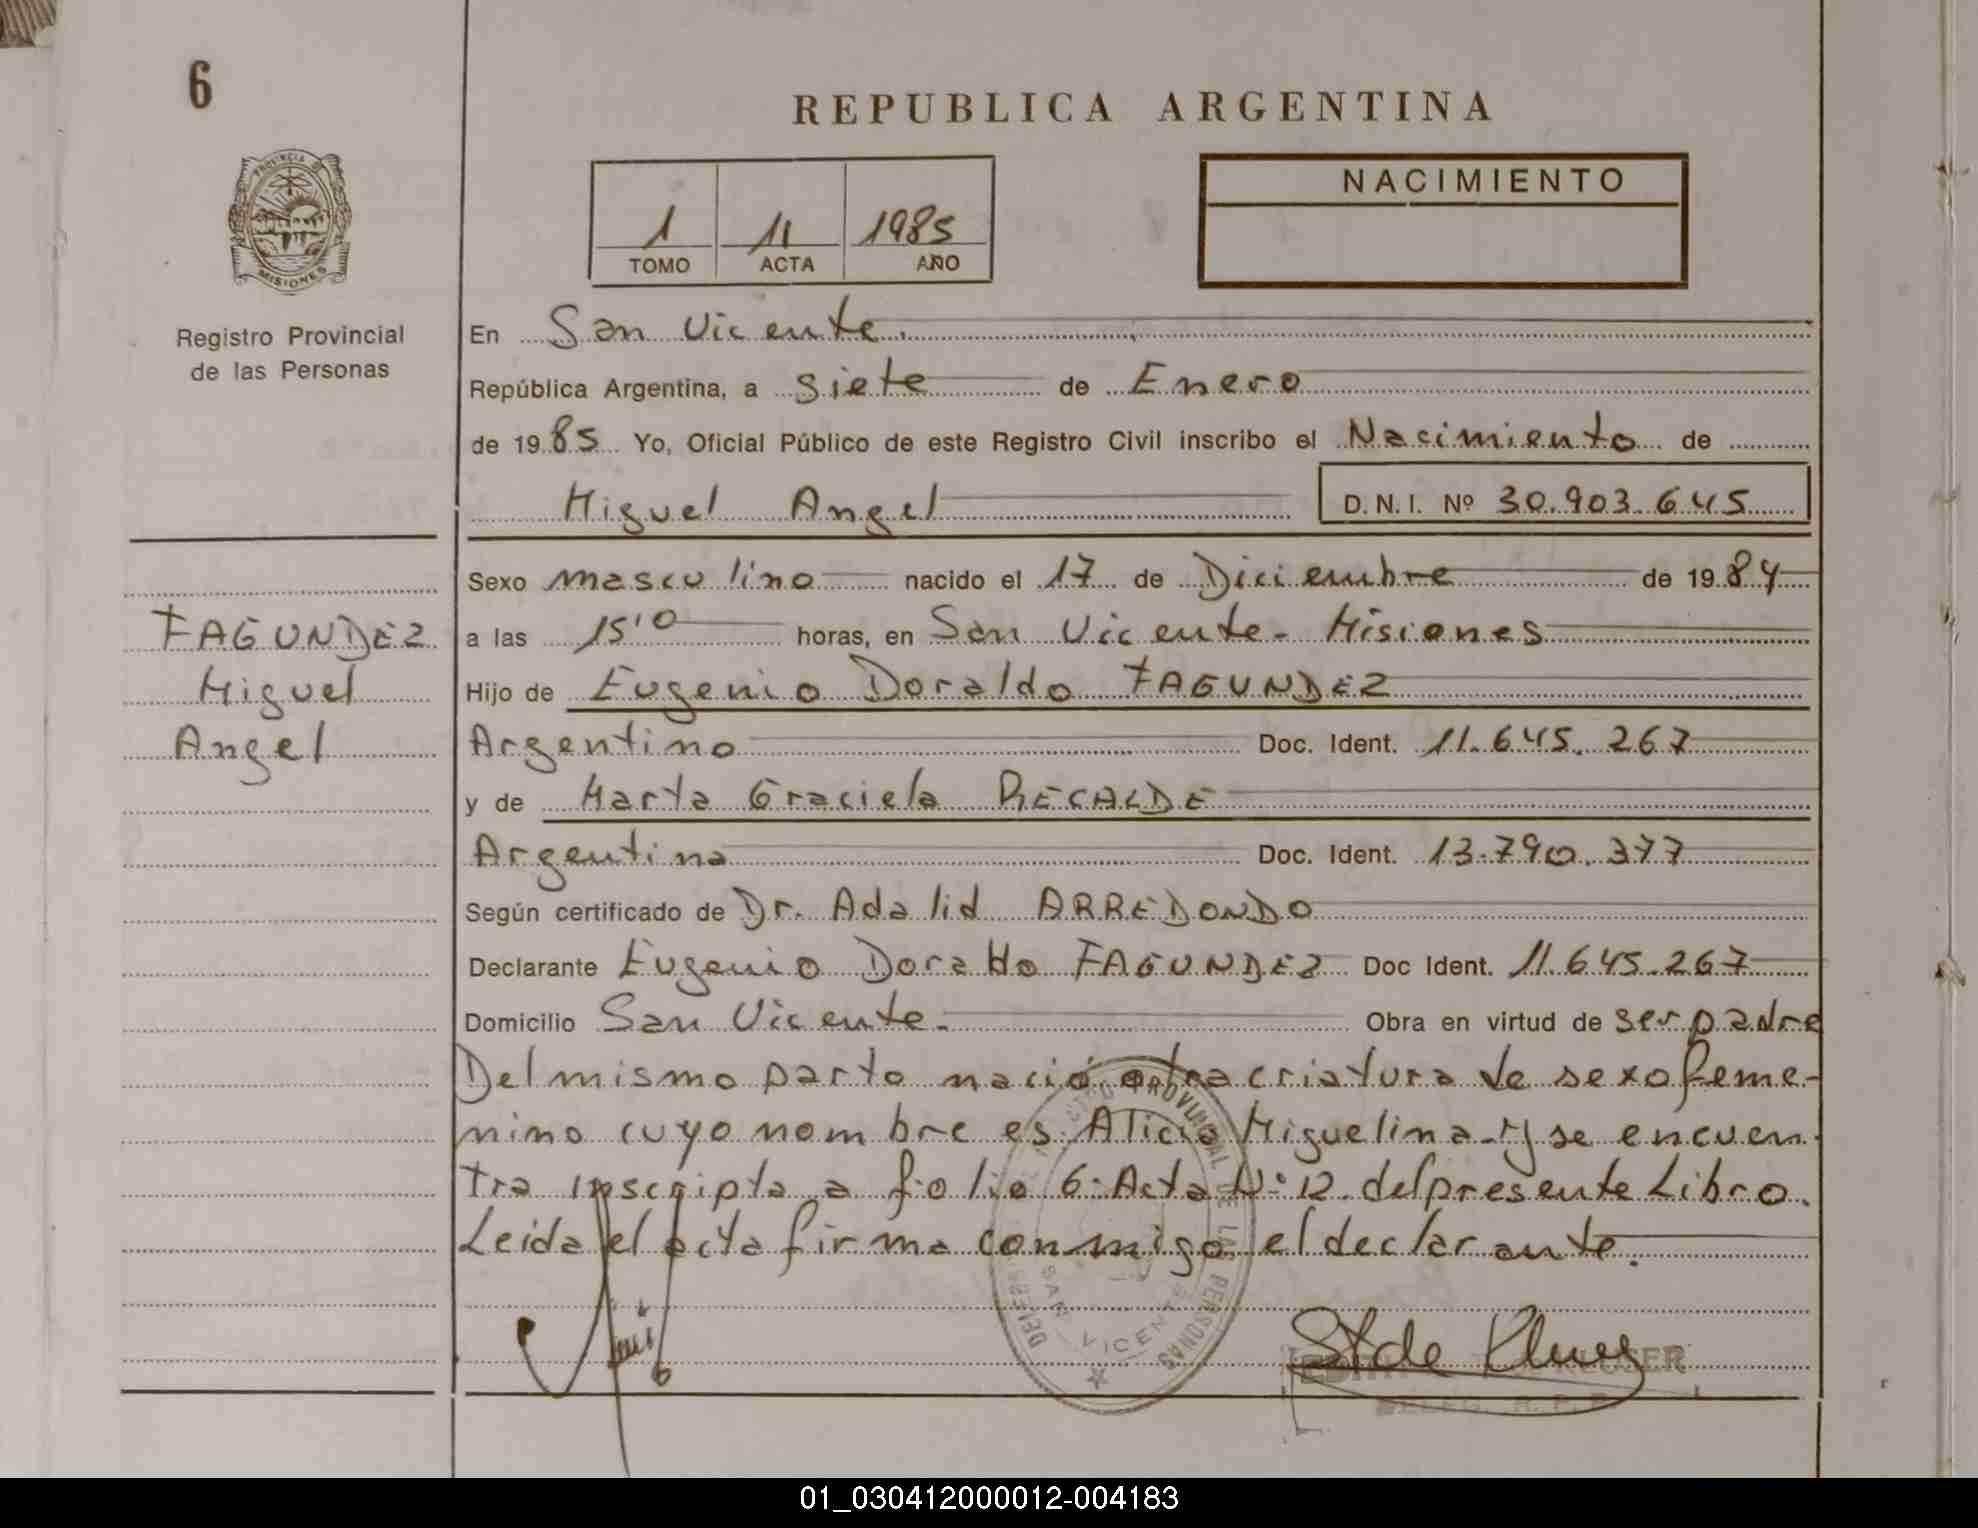 6
REPUBLICA ARGENTINA
PROVINCIA DE
MISIONES
Registro Provincial
de las Personas
1 11 1985
TOMO ACTA AÑO
NACIMIENTO
En San Vicente.
República Argentina, a siete de Enero
de 1985 Yo, Oficial Público de este Registro Civil inscribo el Nacimiento de
Miguel Angel D.N.I. Nº 30.903.645
Sexo masculino nacido el 17 de Diciembre de 1984
FAGUNDEZ
Miguel
Angel
a las 15'0 horas, en San Vicente - Misiones
Hijo de Eugenio Doraldo FAGUNDEZ
Argentino Doc. Ident. 11.645.267
y de Marta Graciela RECALDE
Argentina Doc. Ident. 13.790.377
Según certificado de Dr. Adalid ARREDONDO
Declarante Eugenio Doraldo FAGUNDEZ Doc Ident. 11.645.267
Domicilio San Vicente. Obra en virtud de ser padre
Del mismo parto nació otra criatura de sexo feme-
nino cuyo nombre es Alicia Miguelina - y se encuen-
tra inscripta a folio 6 - Acta Nº 12 del presente Libro.
Leida el acta firma conmigo el declarante.
REGISTRO PROVINCIAL DE LAS PERSONAS
SAN VICENTE
St de
DELEG. R. P. P.
01_030412000012-004183